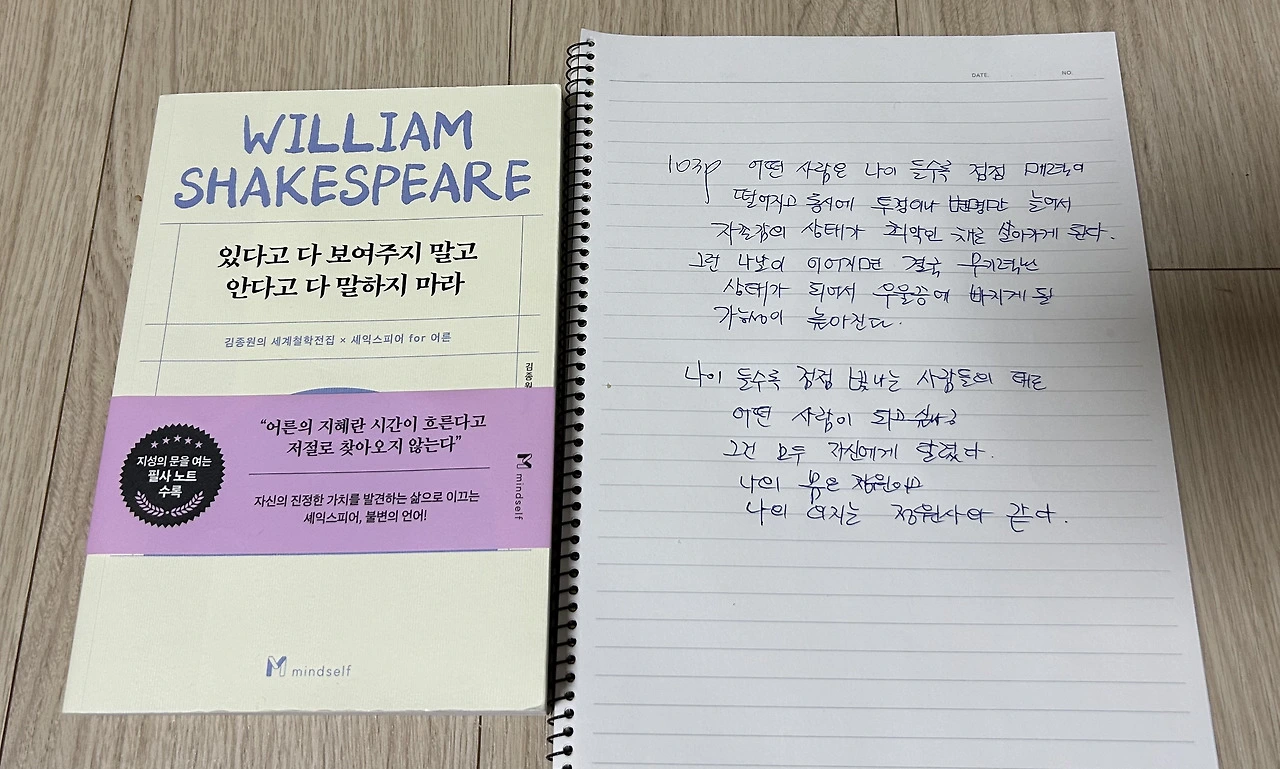 WILLIAM
SHAKESPEARE
있다고 다 보여주지 말고
안다고 다 말하지 마라
김종원의 세계철학전집 × 셰익스피어 for 어른
김종원
“어른의 지혜란 시간이 흐른다고
저절로 찾아오지 않는다”
지성의 문을 여는
필사 노트
수록
자신의 진정한 가치를 발견하는 삶으로 이끄는
셰익스피어, 불변의 언어!
mindself
mindself
DATE. NO.
103p 어떤 사람은 나이 들수록 점점 매력이
떨어지고 동시에 투정이나 변명만 늘어서
자존감의 상태가 최악인 채로 살아가게 된다.
그런 나날이 이어지면 결국 무기력한
상태가 되어서 우울증에 빠지게 될
가능성이 높아진다.
나이 들수록 점점 빛나는 사람들의 태도
어떤 사람이 되고 싶은가
그건 모두 자신에게 달렸다.
나의 몸은 정원이고
나의 의지는 정원사와 같다.